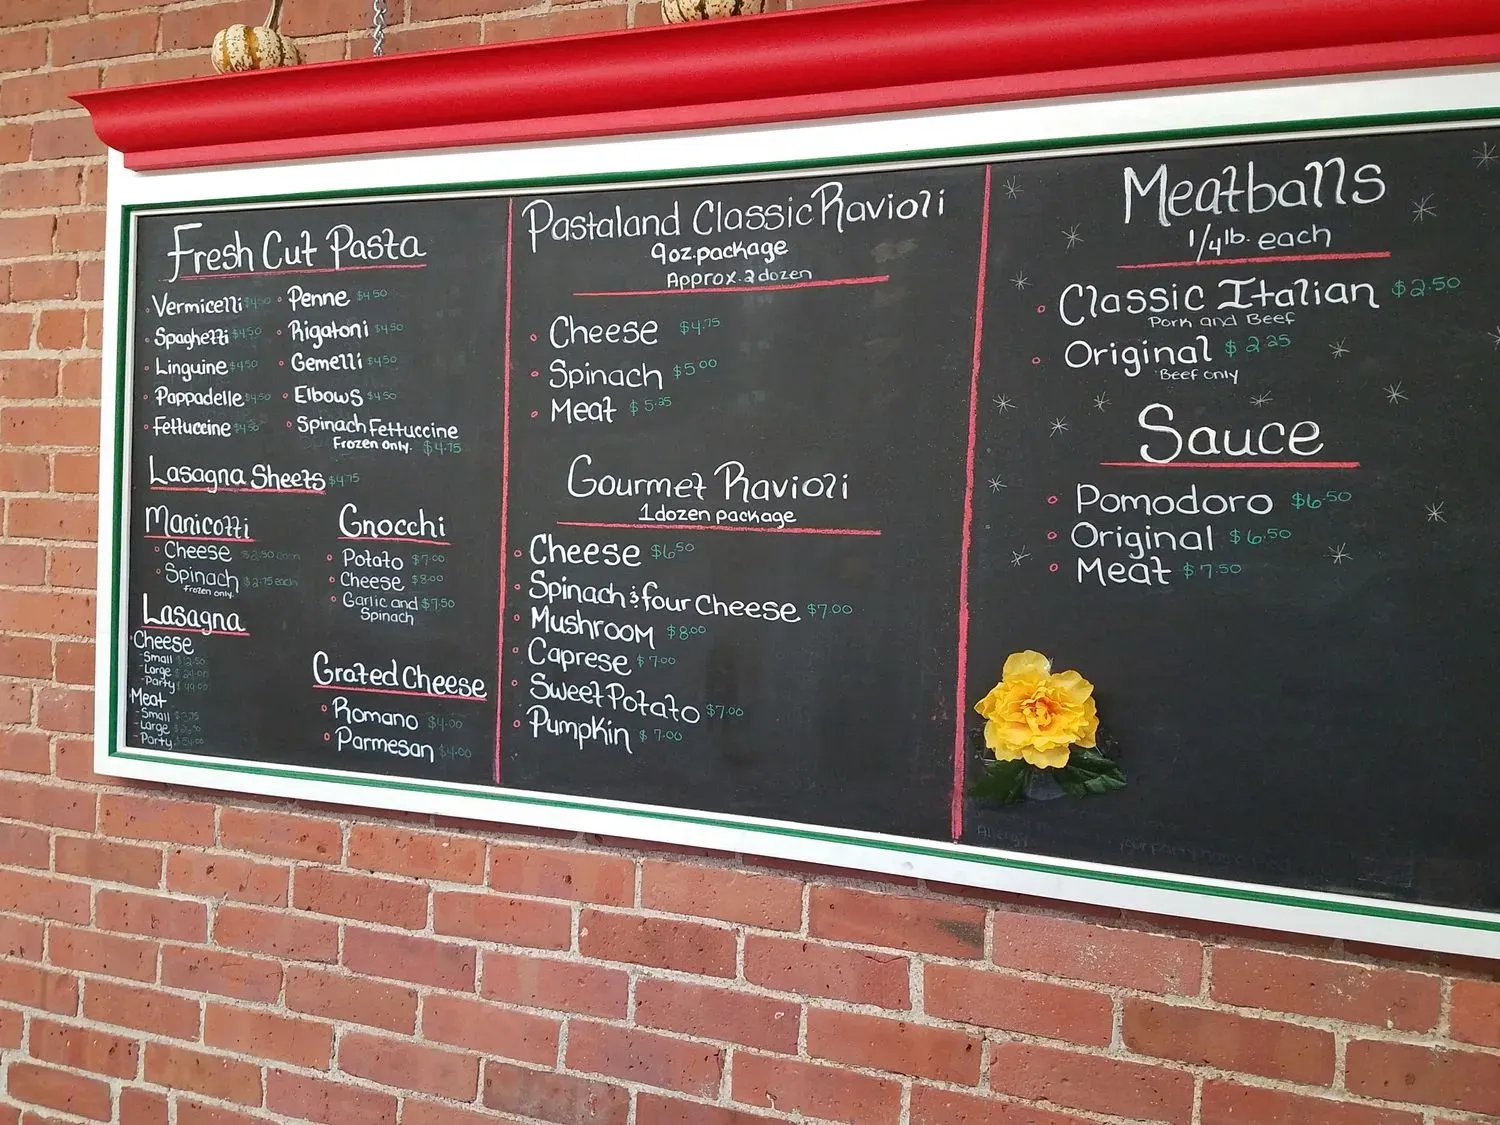 Fresh Cut Pasta
Vermicelli $4.50
Spaghetti $4.50
Linguine $4.50
Pappadelle $4.50
Fettuccine $4.50
Penne $4.50
Rigatoni $4.50
Gemelli $4.50
Elbows $4.50
Spinach Fettuccine
Frozen only. $4.75
Lasagna Sheets $4.75
Manicotti
Cheese $2.50
Spinach $2.75 each
frozen only.
Lasagna
Cheese
- Small
- Large
- Party
Meat
- Small
- Large
- Party
Gnocchi
Potato $7.00
Cheese $8.00
Garlic and $7.50
Spinach
Grated Cheese
Romano $4.00
Parmesan $4.00
Pastaland Classic Ravioli
9oz. package
Approx. 2 dozen
Cheese $4.75
Spinach $5.00
Meat $5.25
Gourmet Ravioli
1 dozen package
Cheese $6.50
Spinach & four Cheese $7.00
Mushroom $8.00
Caprese $7.00
Sweet Potato $7.00
Pumpkin $7.00
Meatballs
1/4 lb. each
Classic Italian $2.50
Pork and Beef
Original $2.25
Beef only
Sauce
Pomodoro $6.50
Original $6.50
Meat $7.50